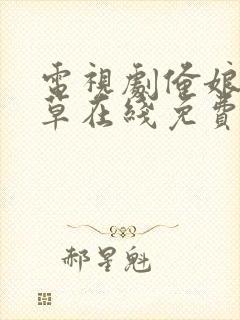 電視劇俺娘
草在綫免費
郝星魁